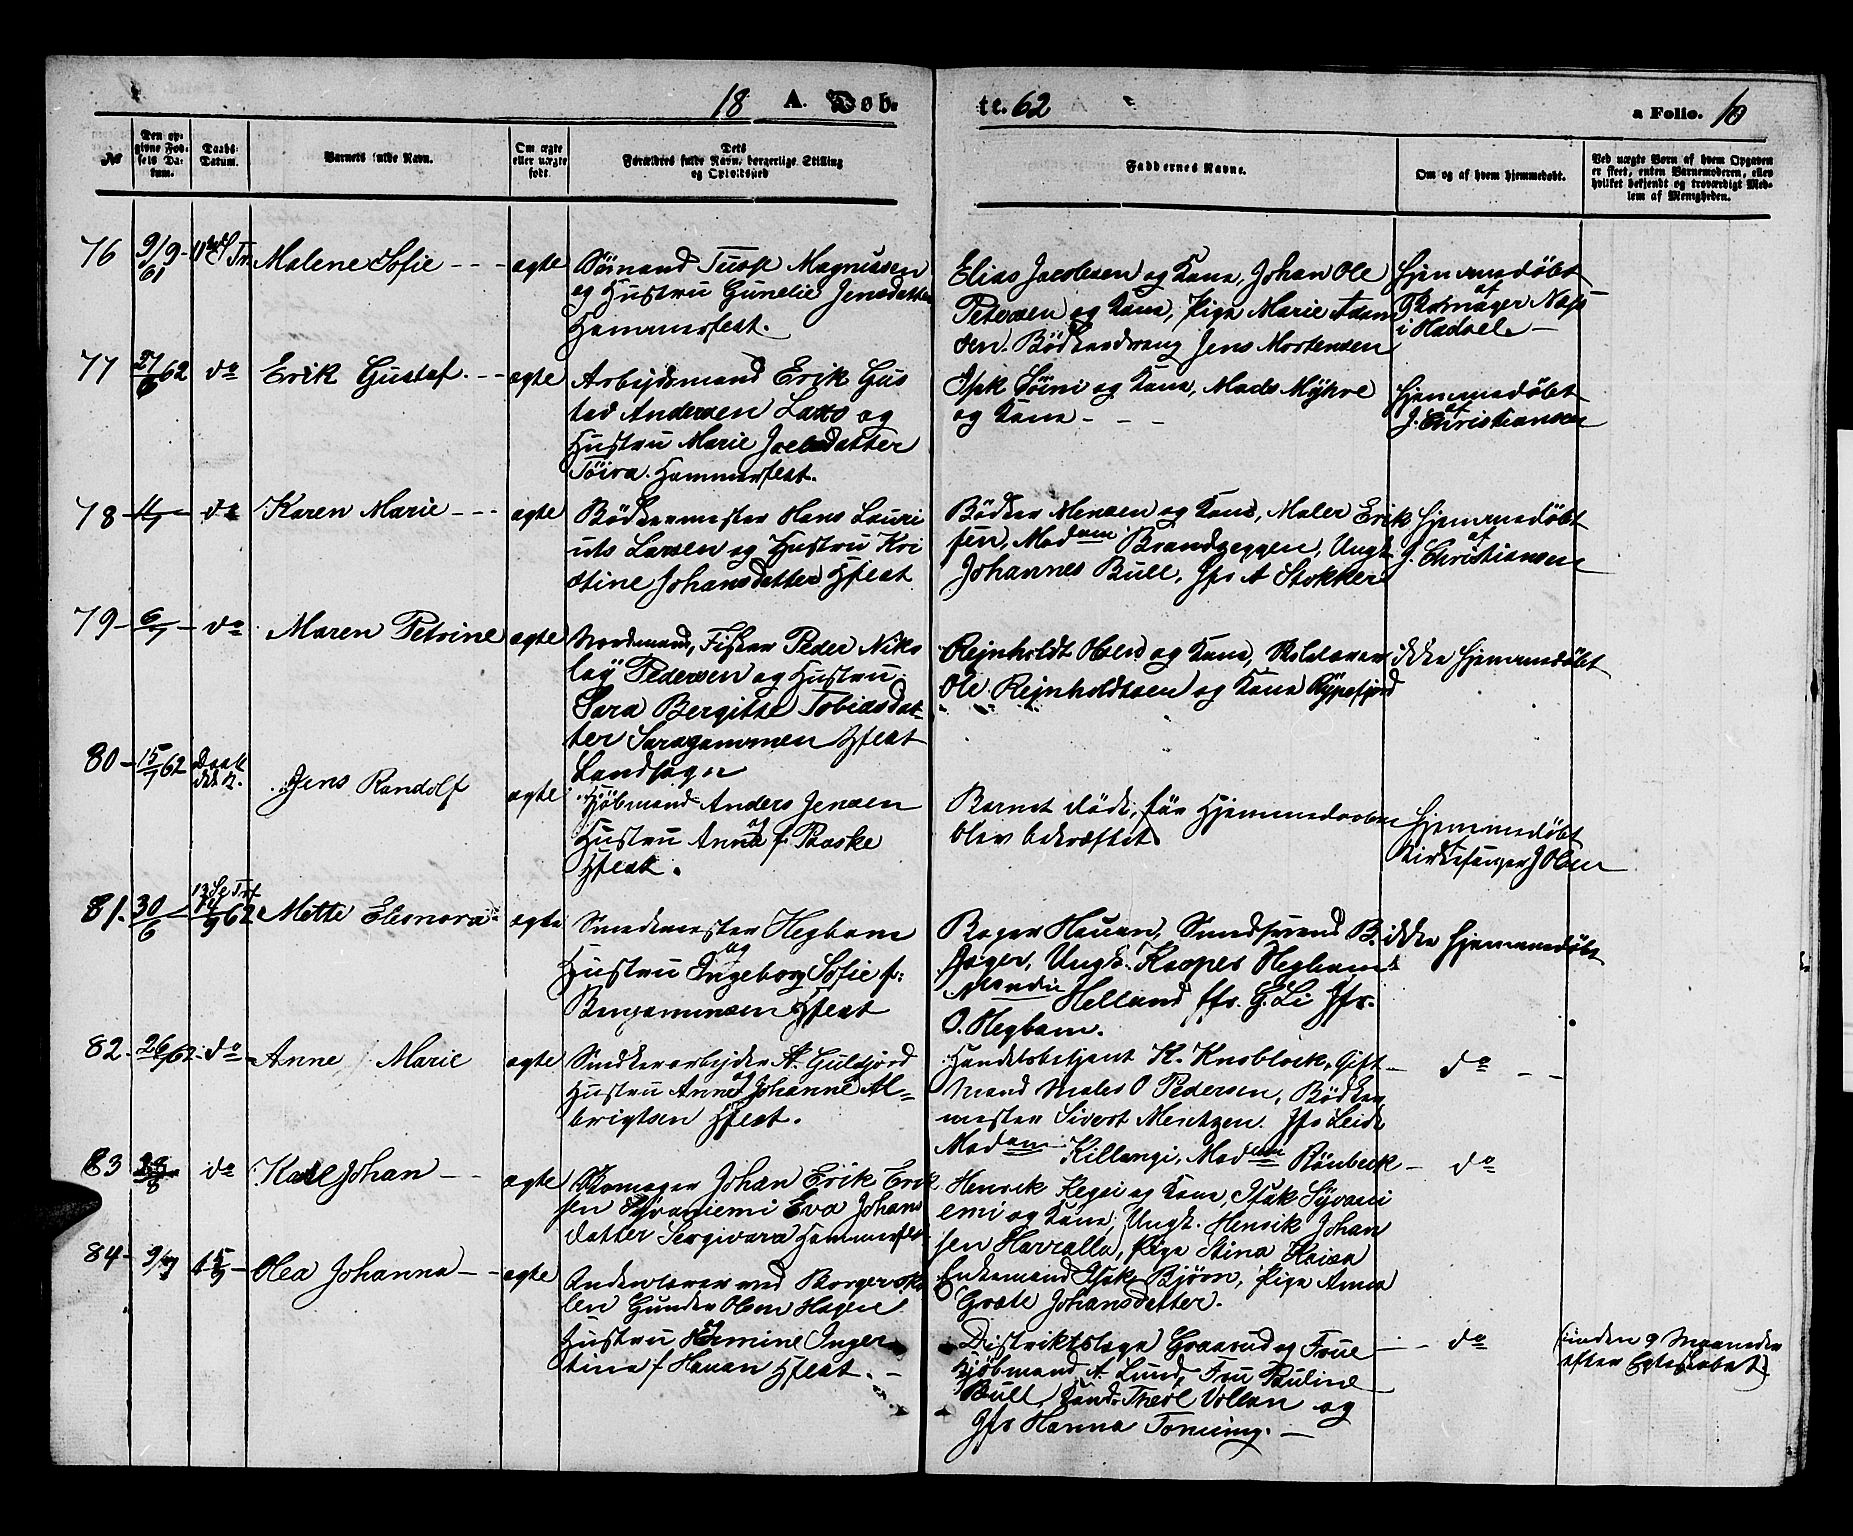 18 A. Døb-
te. 62
a Folio. 10
No
Den op-
givne Fød-
sels Da-
tum.
Daabs-
Datum.
Barnets fulde Navn.
Om ægte
eller uægte
født.
Dets
Forældres fulde Navn, borgerlige Stilling
og Opholdssted
Faddernes Navne.
Om og af hvem hjemmedøbt.
Ved uægte Børn af hvem Opgaven
er skeet, enten Barnemoderen, eller
hvilket bekjendt og troværdigt Med-
lem af Menigheden.
76 9/9 61 Malene Sofie - - - ægte
Sømand Magnussen
og Hustru Gunelie Jensdatter
Hammerfest.
Elias Jacobsen og Kone, Johan Ole
Petersen og Kone, Pige Marie Adam
sen. Bødkerdreng Jens Mortensen
Hjemmedøbt
af
i Hadsel -
77 27/6 62 do Erik Gustaf. - - ægte
Arbejdsmand Erik Gus
tav Andersen Laxo og
Hustru Marie Joelsdatter
Töira. Hammerfest.
Isak Söini og Kone, Mads Myhre
og Kone - - -
Hjemmedøbt
af
J. Christiansen
78 do Karen Marie - - - ægte
Bødkermester Hans Lauri
uts Larsen og Hustru Kri
stine Johansdatter Hfest
Bødker Mensen og Kone, Maler Erik
sen, Madam Brandseggen, Ungk.
Johannes Bull, Jfr A Stokker
Hjemmedøbt
af
J. Christiansen
79 - 6/7 - do Maren Petrine ægte
Nordmand, Fisker Peder Nik
lay Pedersen og Hustru
Sara Bergitte Tobiasdat-
ter Saragammen Hfest
Landsogn
Rejnholdt Olsen og Kone, Skolelærer
Ole Rejnholdtsen og Kone Rypefjord
ikke hjemmedøbt
80 - 15/7 62
Jens Randolf ægte
Kjøbmand Anders Jensen
og
Hustru Anna f. Baske
Hfest.
Barnet døde, før Hjemmedaaben
blev bekræftet.
Hjemmedøbt
af
Kirkesanger J Olsen
81. 30/6 13 S e Trf 14/9 62 Mette Elenora ægte
Smedemester Hegbom
og
Hustru Ingeborg Sofie f:
Benjaminsen Hfest
Bager Hauan, Smedsvend B.
Jæger, Ungk. Kasper Hegbom
Helland Jfr. G. Li Jfr.
O. Hegbom.
ikke hjemmedøbt
82 - 26/ 62 do Anne Marie ægte
Snedkerarbejder A. Gulsfjord
og
Hustru Anna Johanne Al-
brigtsen Hfest.
Handelsbetjent K. Knoblock, Gift
Mand Males O Pedersen, Bødker
mester Sivert Mentzen. Jfr Leide
Madam Killengi, Madam Rönbeck
do - -
83 28/8 do Karl Johan - - ægte
Skomager Johan Erik Erik
sen Syvaniemi Eva Johans
datter Sergivara Hammerfest
Henrik Kegei og Kone, Isak Syvani
emi og Kone, Ungk. Henrik Johan
sen Harralla, Pige Stina Kaisa
Enkemand Isak Björn, Pige Anna
Grete Johansdatter.
- do
84 - 9/7 15/9 - Olea Johanna - - ægte
Underlærer ved Borgersko
len Gunder Olsen Hagen
og
Hustru Hermine Inger
tina f. Hauan Hfest. -
Distriktslæge Graarud og Frue
Kjøbmand A. Lund, Fru Pauline
Bull, Kand. Theol Vollan og
Jfr Hanna Tonning. -
- do
(inden 9 Maaneder
efter Egteskabet)